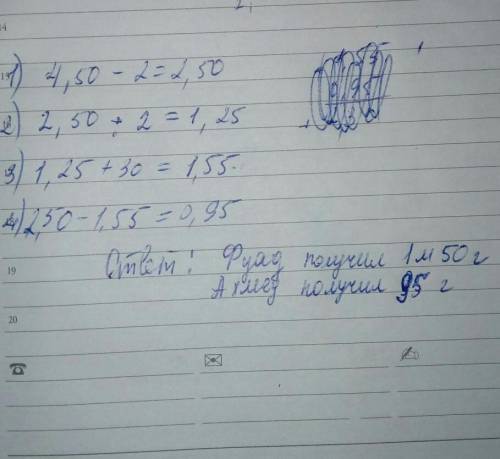 1) 4,50 - 2 = 2,50
2) 2,50 ÷ 2 = 1,25
3) 1,25 + 30 = 1,55.
4) 2,50 - 1,55 = 0,95
Ответ: Фуад получил 1м 50г
19
Ахмед получил 95 г
20